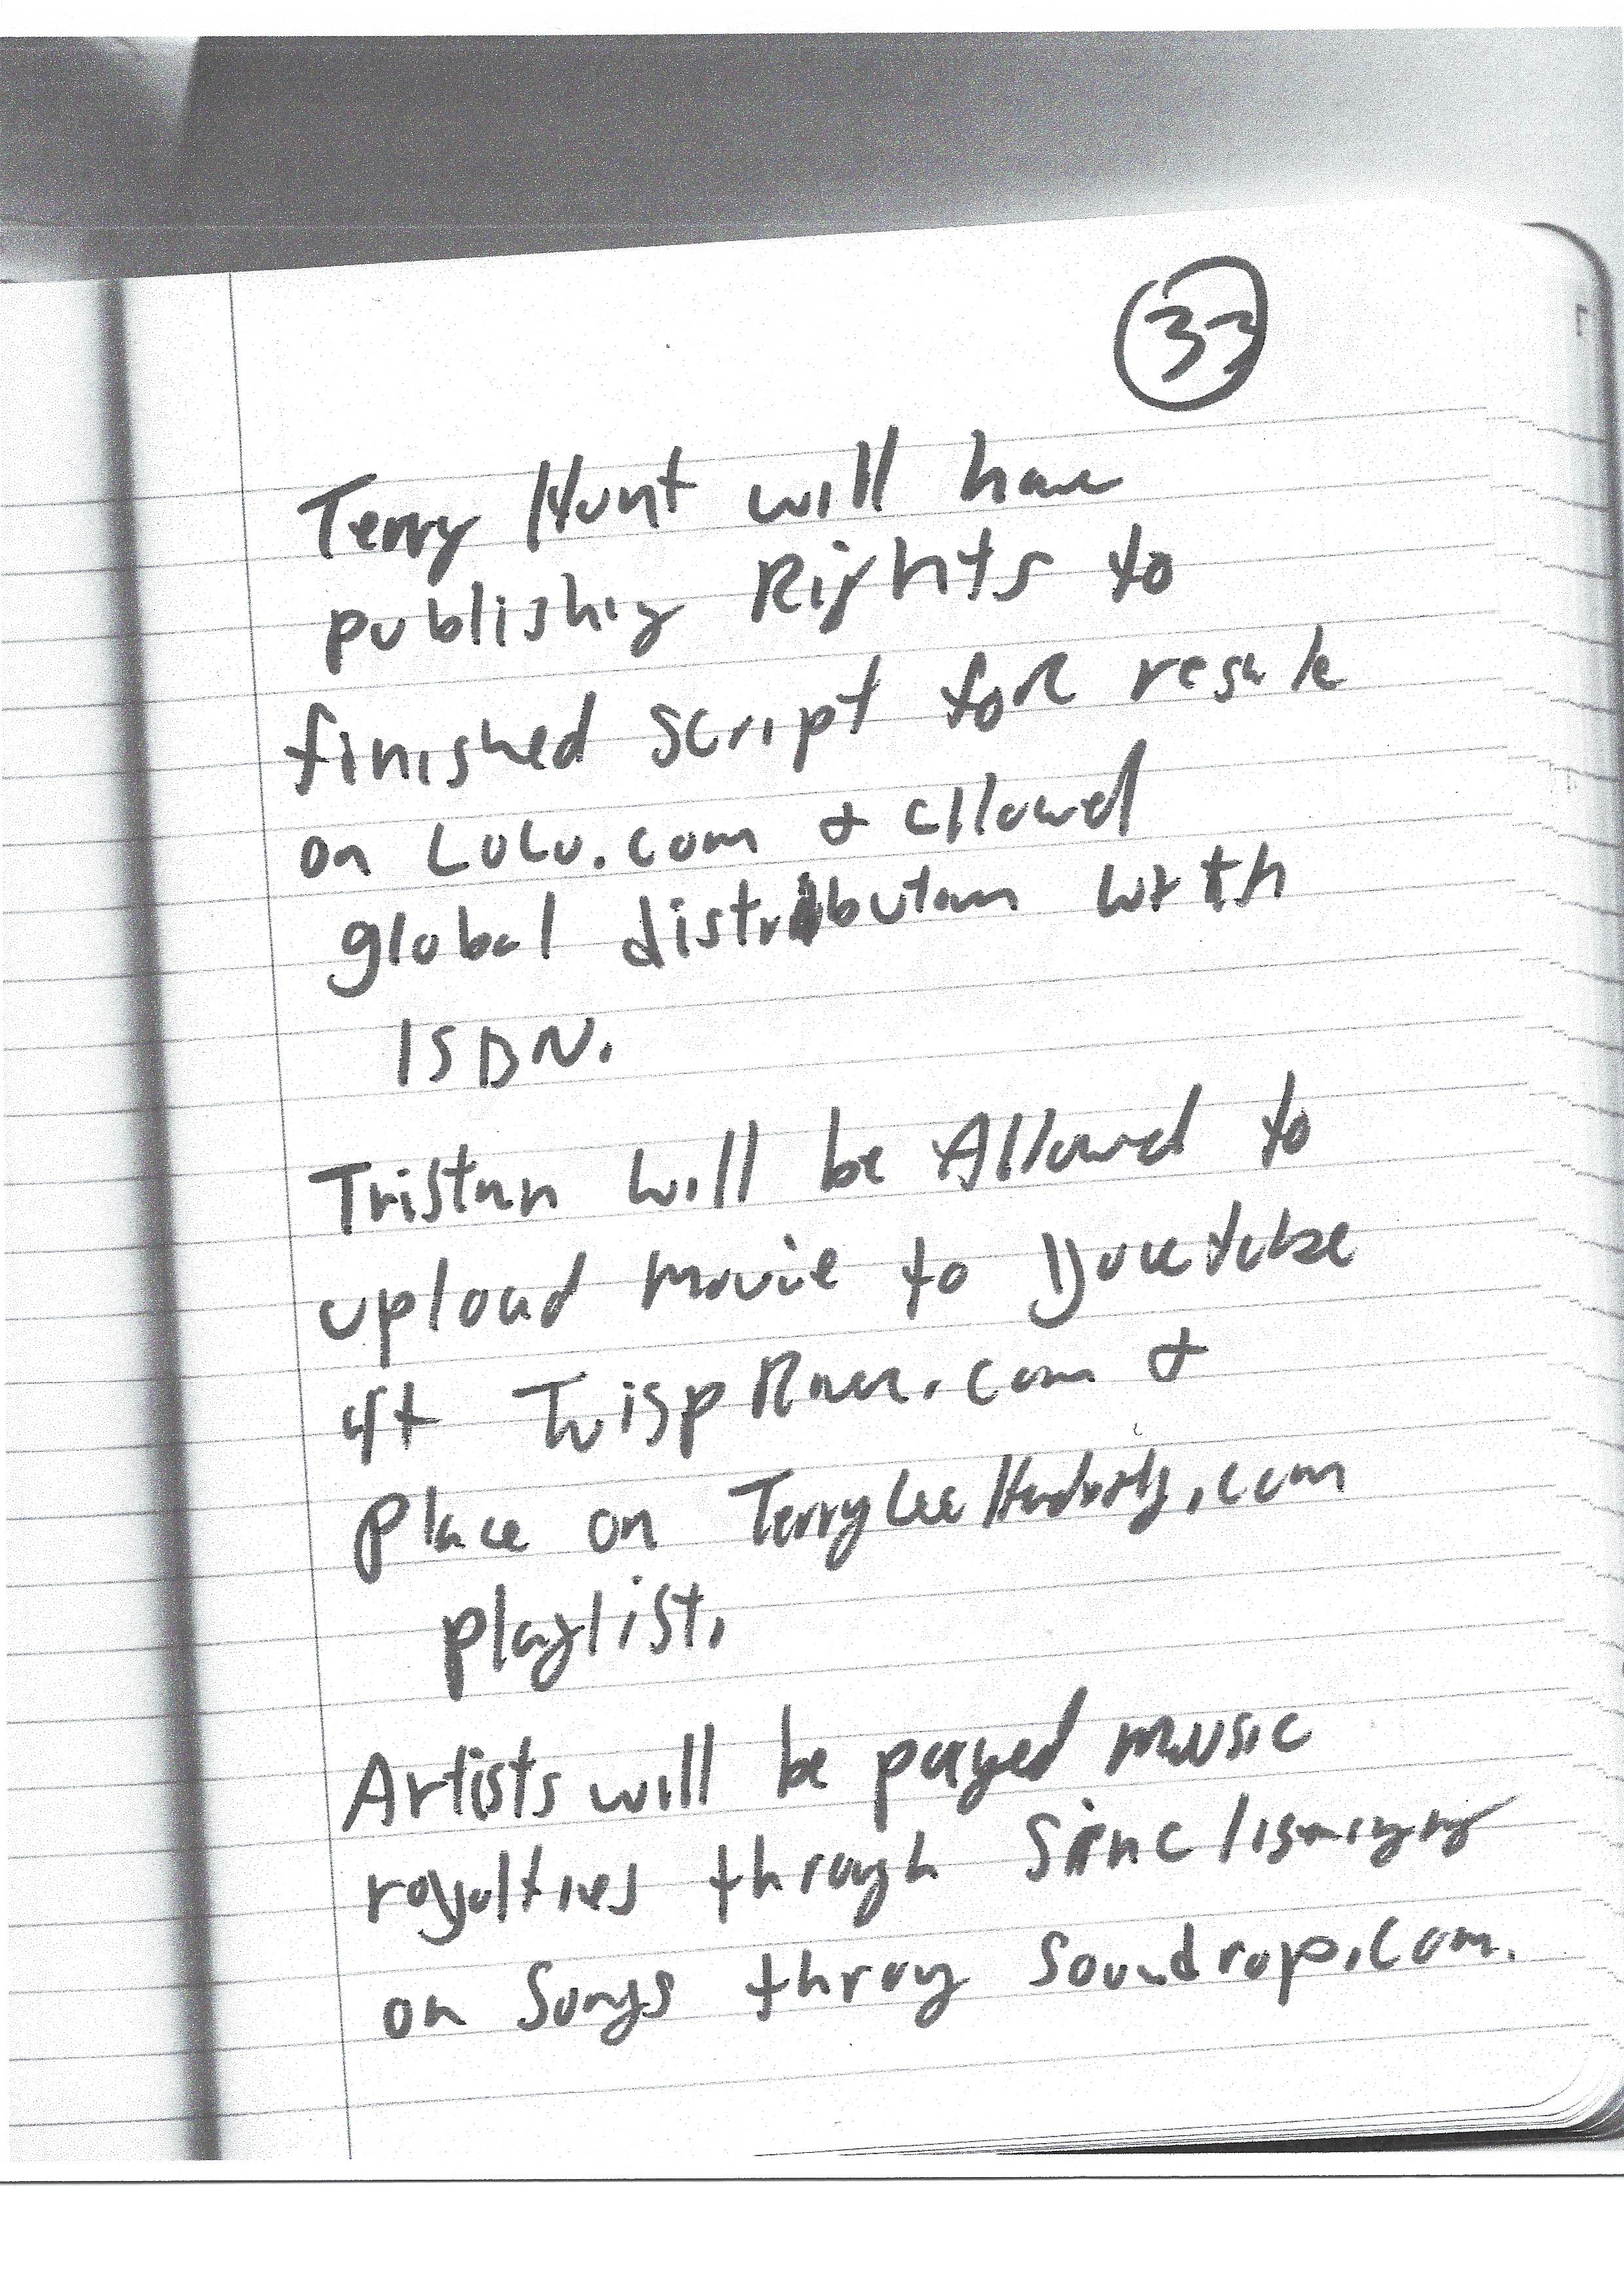 33
Terry Hunt will have
publishing Rights to
finished script foR resale
on LuLu.com & allowed
global distributon with
ISBN.
Tristan will be Allowed to
upload movie to Youetube
At
.com &
place on
playlist.
Artists will be payed music
royalties through Sinc
on Songs throug Soundrop.com.